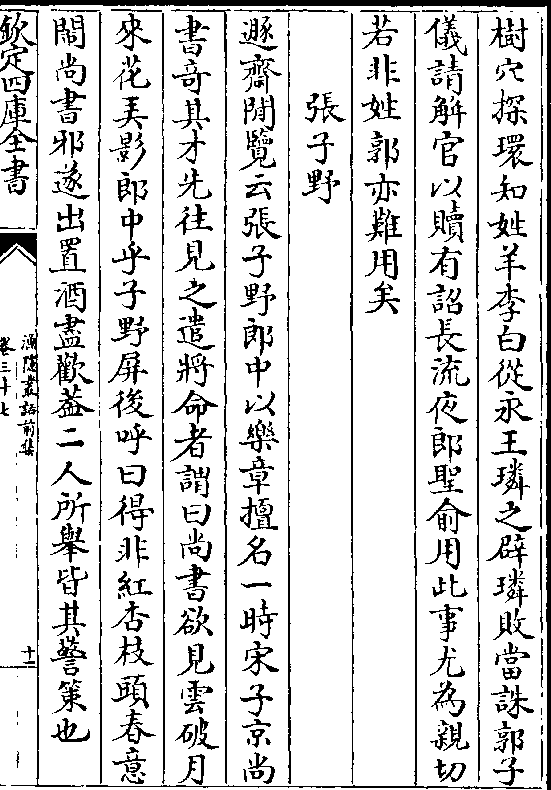 樹穴探環知姓羊李白從永王璘之辟璘敗當誅郭子
儀請解官以贖有詔長流夜郎聖俞用此事尤為親切
若非姓郭亦難用矣
張子野
遯齋閒覽云張子野郎中以樂章擅名一時宋子京尚
書竒其才先往見之遣將命者謂曰尚書欲見雲破月
來花弄影郎中乎子野屏後呼曰得非紅杏枝頭春意
閙尚書邪遂出置酒盡歡葢二人所舉皆其警策也
欽定四庫全書
漁隱叢話前集
卷三十七
十一